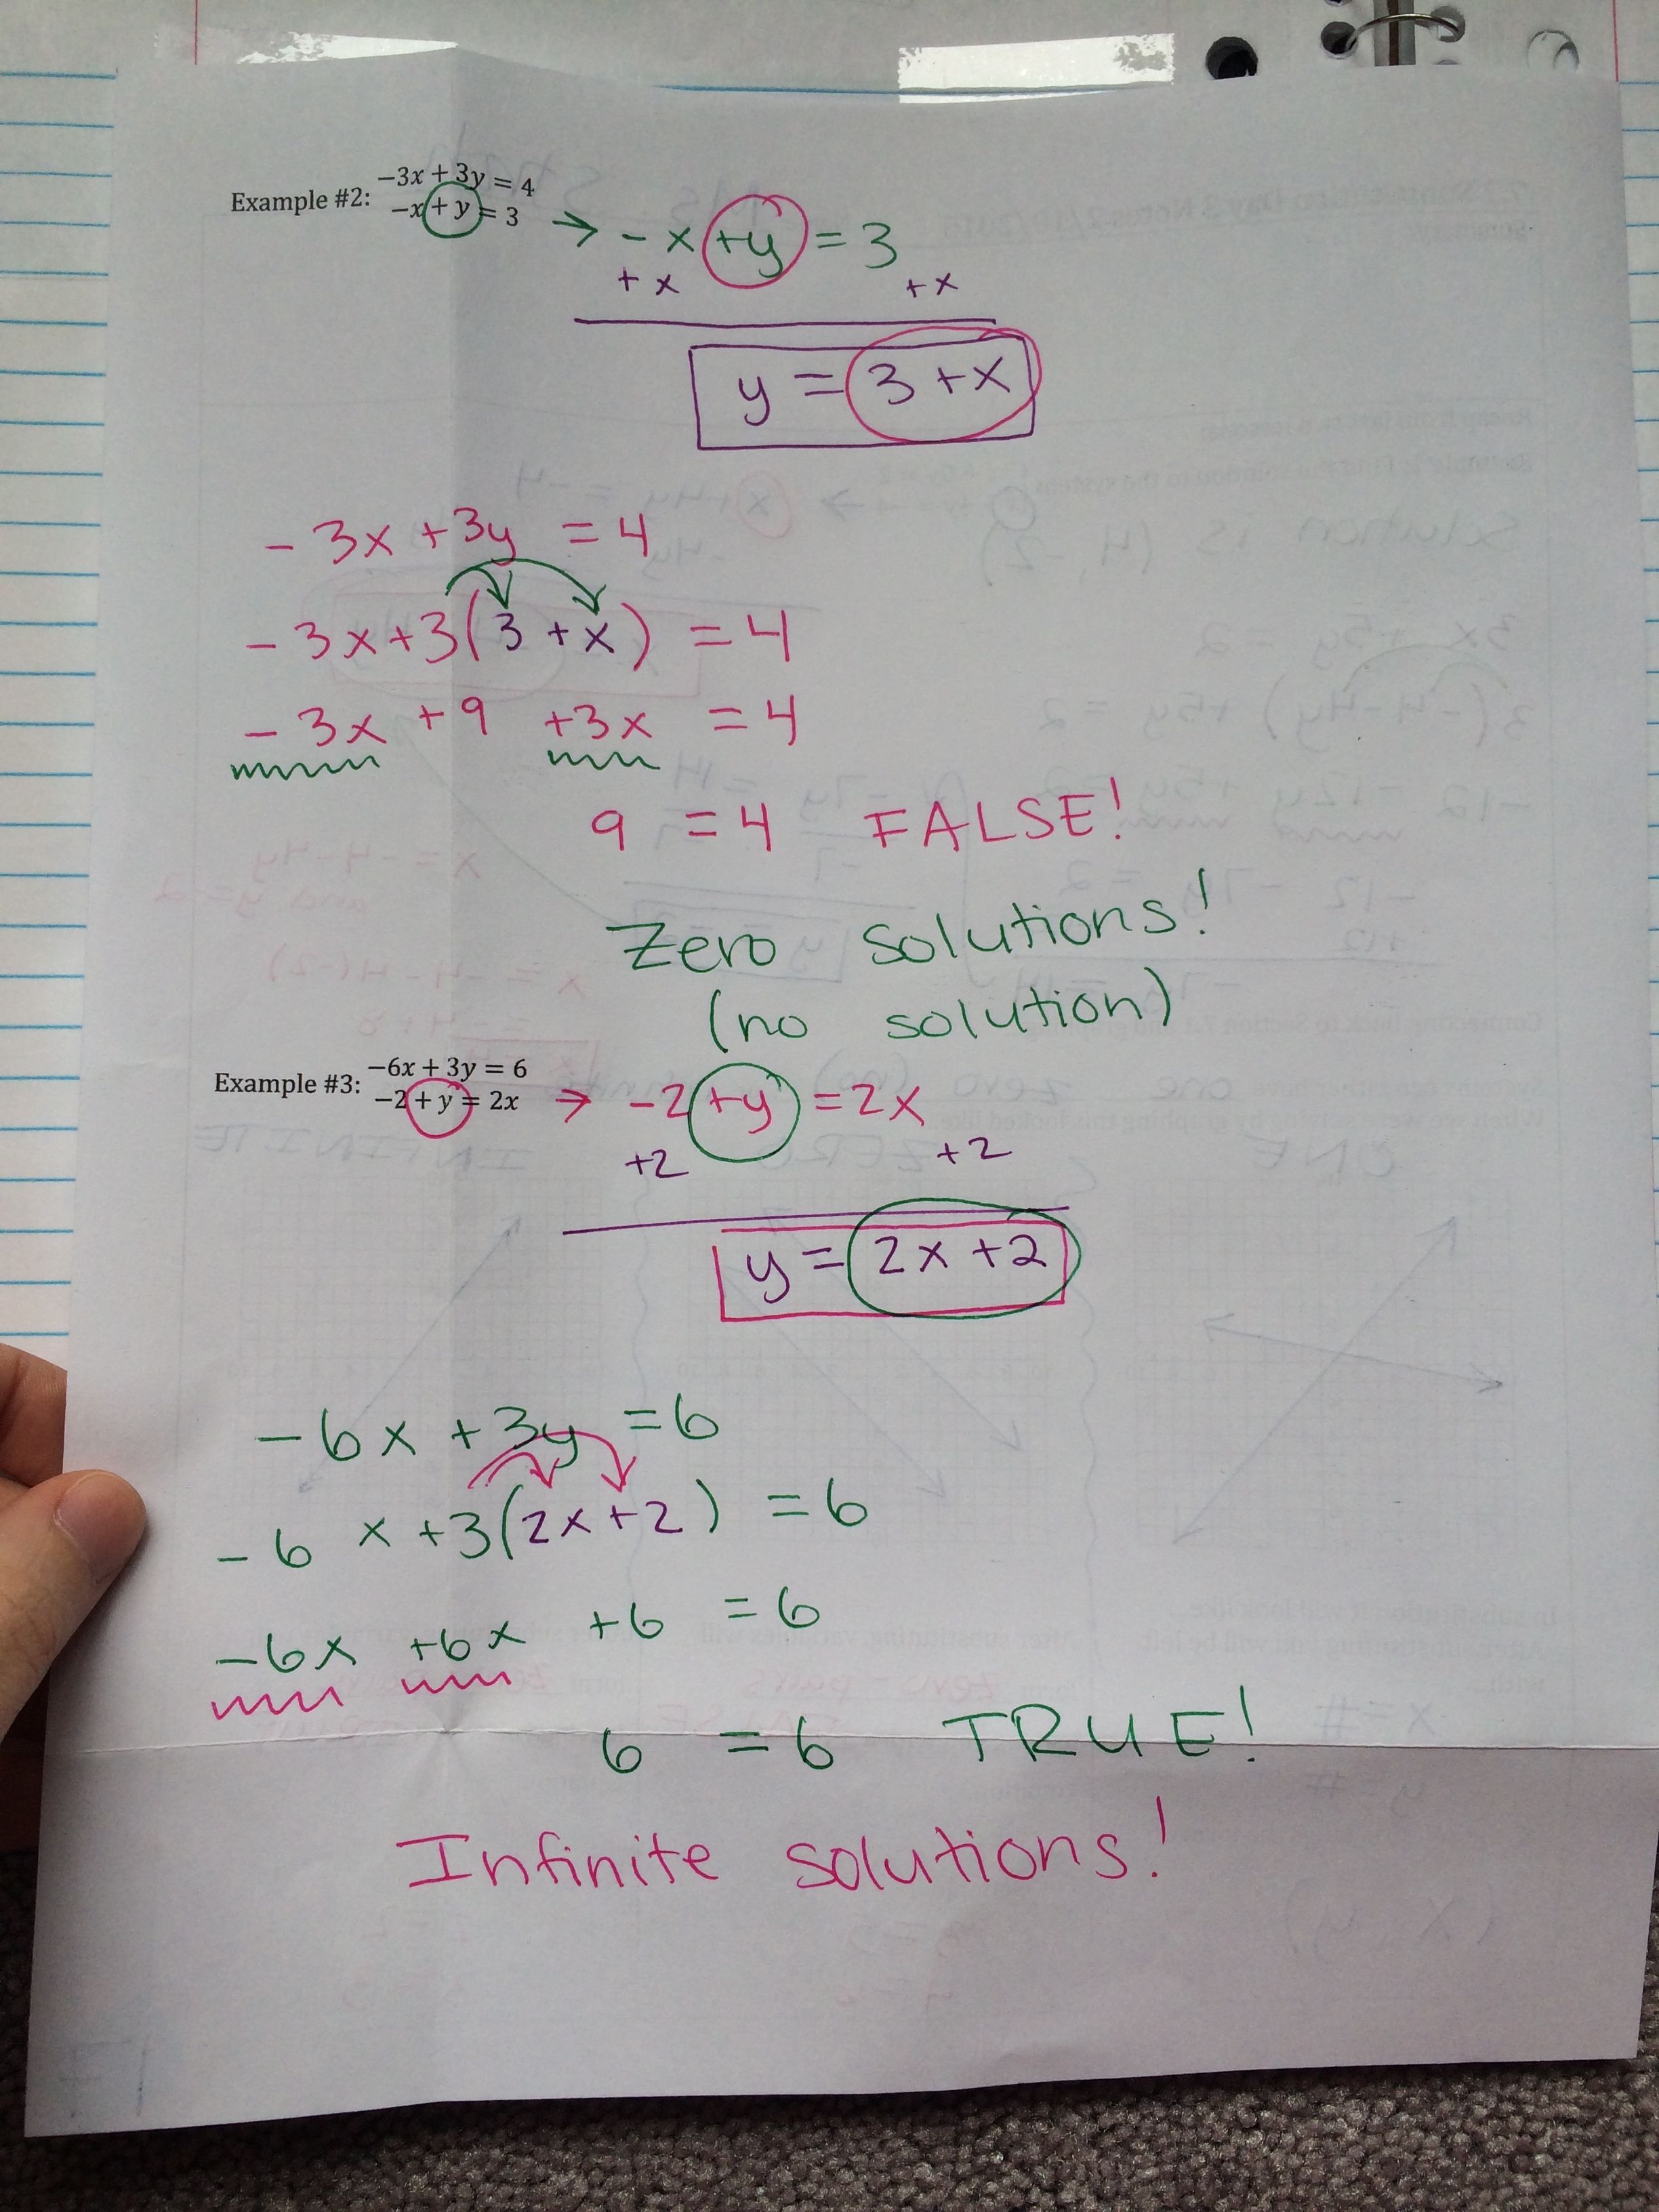 Example #2: −3x + 3y = 4
−x + y = 3 → -x +y = 3
+x +x
y = 3 +x
-3x +3y = 4
-3x+3(3 +x) = 4
-3x +9 +3x = 4
9 = 4 FALSE!
Zero solutions!
(no solution)
Example #3: −6x + 3y = 6
−2 + y = 2x → -2 +y = 2x
+2 +2
y = 2x +2
-6x +3y =6
-6x +3(2x+2) =6
-6x +6x +6 =6
6 =6 TRUE!
Infinite solutions!